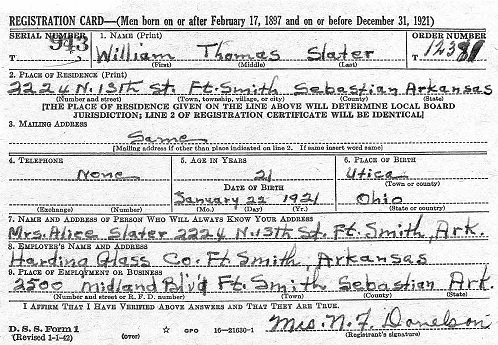 REGISTRATION CARD—(Men born on or after February 17, 1897 and on or before December 31, 1921)
SERIAL NUMBER 1. NAME (Print) ORDER NUMBER
T 943 William Thomas Slater T
(First) (Middle) (Last)
2. PLACE OF RESIDENCE (Print)
2224 N. 13th St. Ft. Smith Sebastian Arkansas
(Number and street) (Town, township, village, or city) (County) (State)
[THE PLACE OF RESIDENCE GIVEN ON THE LINE ABOVE WILL DETERMINE LOCAL BOARD
JURISDICTION; LINE 2 OF REGISTRATION CERTIFICATE WILL BE IDENTICAL]
3. MAILING ADDRESS
Same
[Mailing address if other than place indicated on line 2. If same insert word same]
4. TELEPHONE 5. AGE IN YEARS 6. PLACE OF BIRTH
None 21 Utica
DATE OF BIRTH (Town or county)
January 22 1921 Ohio
(Exchange) (Number) (Mo.) (Day) (Yr.) (State or country)
7. NAME AND ADDRESS OF PERSON WHO WILL ALWAYS KNOW YOUR ADDRESS
Mrs. Alice Slater 2224 N. 13th St. Ft. Smith, Ark.
8. EMPLOYER'S NAME AND ADDRESS
Harding Glass Co. Ft. Smith, Arkansas
9. PLACE OF EMPLOYMENT OR BUSINESS
2500 Midland Blv'd Ft. Smith Sebastian Ark.
(Number and street or R. F. D. number) (Town) (County) (State)
I AFFIRM THAT I HAVE VERIFIED ABOVE ANSWERS AND THAT THEY ARE TRUE.
D. S. S. Form 1
(Revised 1-1-42) (over) ☆ GPO 16—21630-1 Mrs. N. F. Donelson
(Registrant's signature)